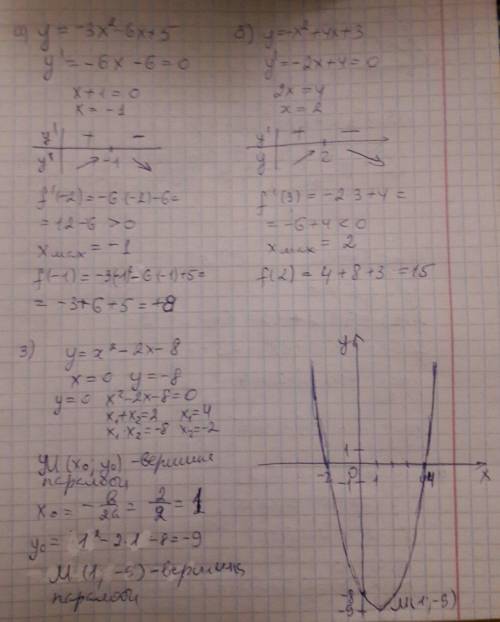 а) y = -3x²-6x+5
y' = -6x -6 = 0
x+1 = 0
x = -1
y' + -
y -1
f'(-2) = -6·(-2)-6=
= 12-6 > 0
x мах = -1
f(-1) = -3(-1)²-6·(-1)+5=
= -3+6+5 = +8
б) y=-x²+4x+3
y'=-2x+4=0
2x=4
x=2
y' + -
y 2
f'(3) = -2·3+4 =
= -6+4 < 0
x мах = 2
f(2) = 4+8+3 =15
3)
y = x²-2x-8
x=0 y=-8
y=0 x²-2x-8=0
x₁+x₂=2 x₁=4
x₁·x₂=-8 x₂=-2
M(x₀; y₀) -вершина
параболи
x₀ = -в/2a = 2/2 = 1
y₀ = 1²-2·1-8=-9
M(1; -9)-вершина
параболи
y
1
-2 0 1 4 x
-1
-8
-9 M(1;-9)